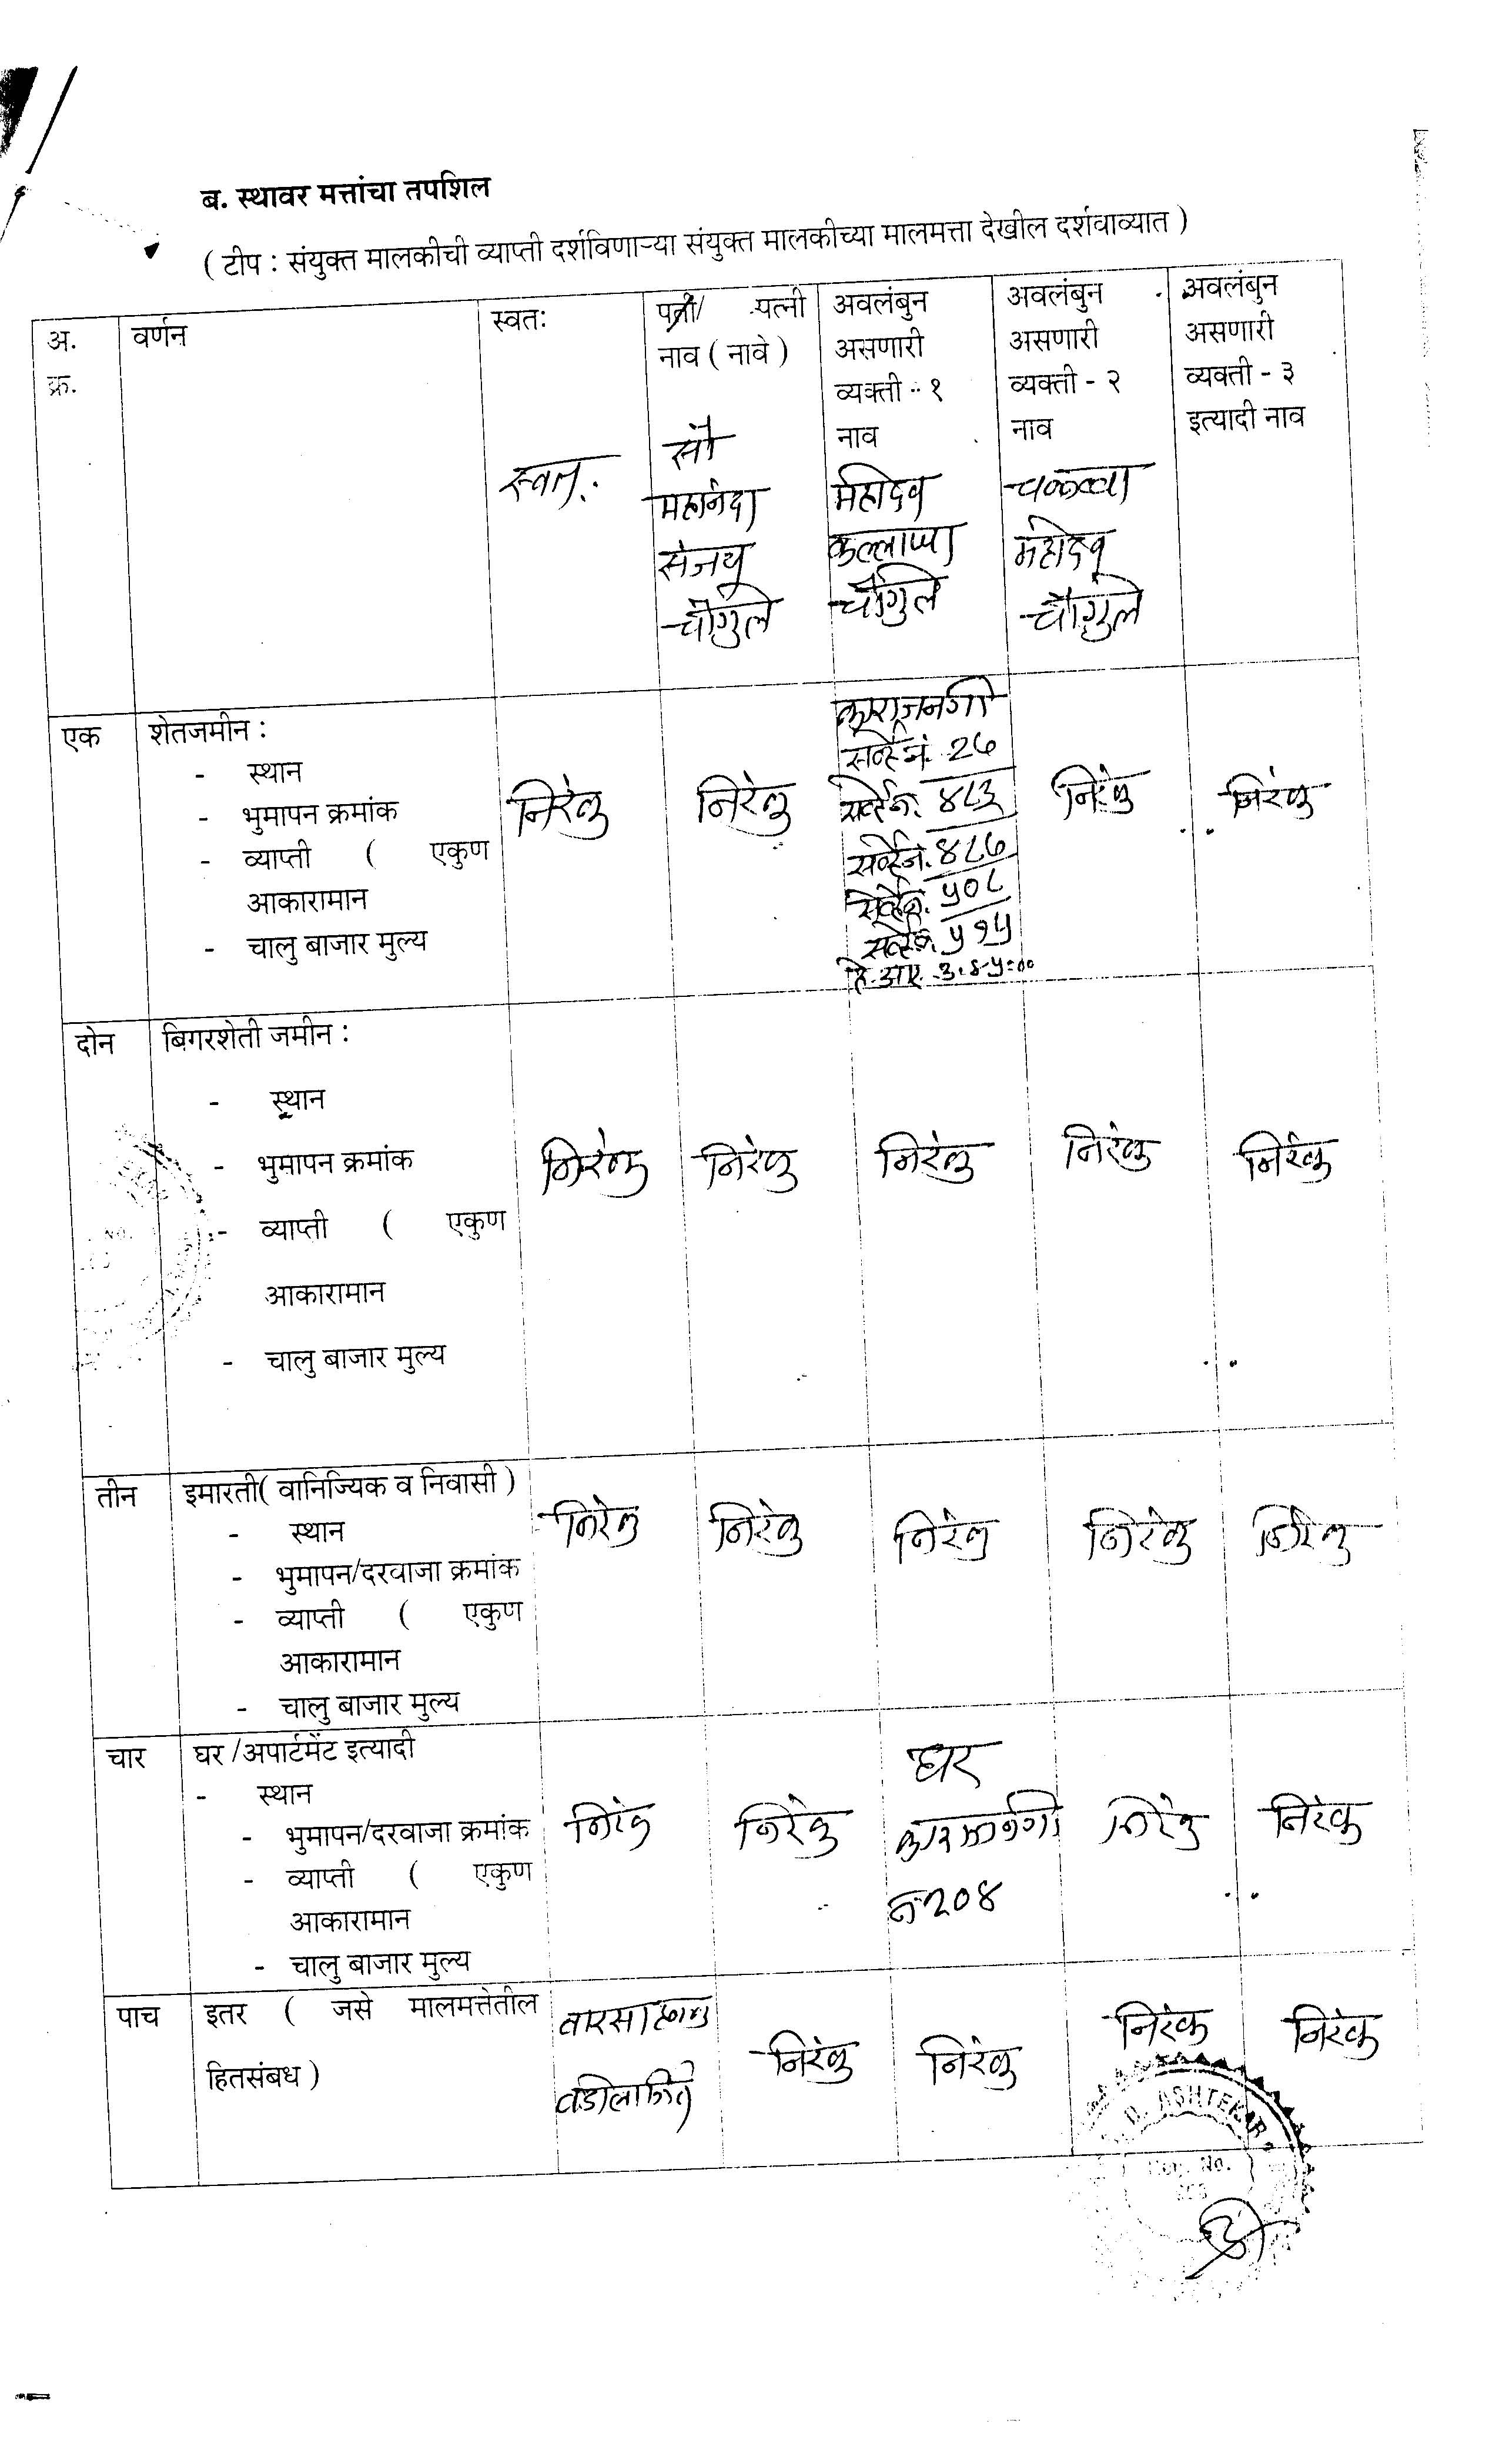 ब. स्थावर मत्तांचा तपशिल
( टीप : संयुक्त मालकीची व्याप्ती दर्शविणाऱ्या संयुक्त मालकीच्या मालमत्ता देखील दर्शवाव्यात )
अ. क्र.
वर्णन
स्वतः
स्वतः
पती/ पत्नी
नाव ( नावे )
सौ
महानंदा
संजय
चौगुले
अवलंबुन
असणारी
व्यक्ती - १
नाव
महादेव
कल्लाप्पा
चौगुले
अवलंबुन
असणारी
व्यक्ती - २
नाव
महादेव
चौगुले
अवलंबुन
असणारी
व्यक्ती - ३
इत्यादी नाव
एक
शेतजमीन :
- स्थान
- भुमापन क्रमांक
- व्याप्ती ( एकुण
आकारामान
- चालु बाजार मुल्य
निरंक
निरंक
सर्व्हे नं. 26
सर्व्हे नं. ४८३
सर्व्हे नं. ४८६
सर्व्हे नं. ५०८
सर्व्हे नं. ५१५
हे. आर.
निरंक
निरंक
दोन
बिगरशेती जमीन :
- स्थान
- भुमापन क्रमांक
- व्याप्ती ( एकुण
आकारामान
- चालु बाजार मुल्य
निरंक
निरंक
निरंक
निरंक
निरंक
तीन
इमारती( वानिज्यिक व निवासी )
- स्थान
- भुमापन/दरवाजा क्रमांक
- व्याप्ती ( एकुण
आकारामान
- चालु बाजार मुल्य
निरंक
निरंक
निरंक
निरंक
निरंक
चार
घर /अपार्टमेंट इत्यादी
- स्थान
- भुमापन/दरवाजा क्रमांक
- व्याप्ती ( एकुण
आकारामान
- चालु बाजार मुल्य
निरंक
निरंक
घर
नं 204
निरंक
निरंक
पाच
इतर ( जसे मालमत्तेतील
हितसंबध )
वारसाहक्क
वडीलार्जित
निरंक
निरंक
निरंक
निरंक
D. ASHTEKAR
Reg. No.